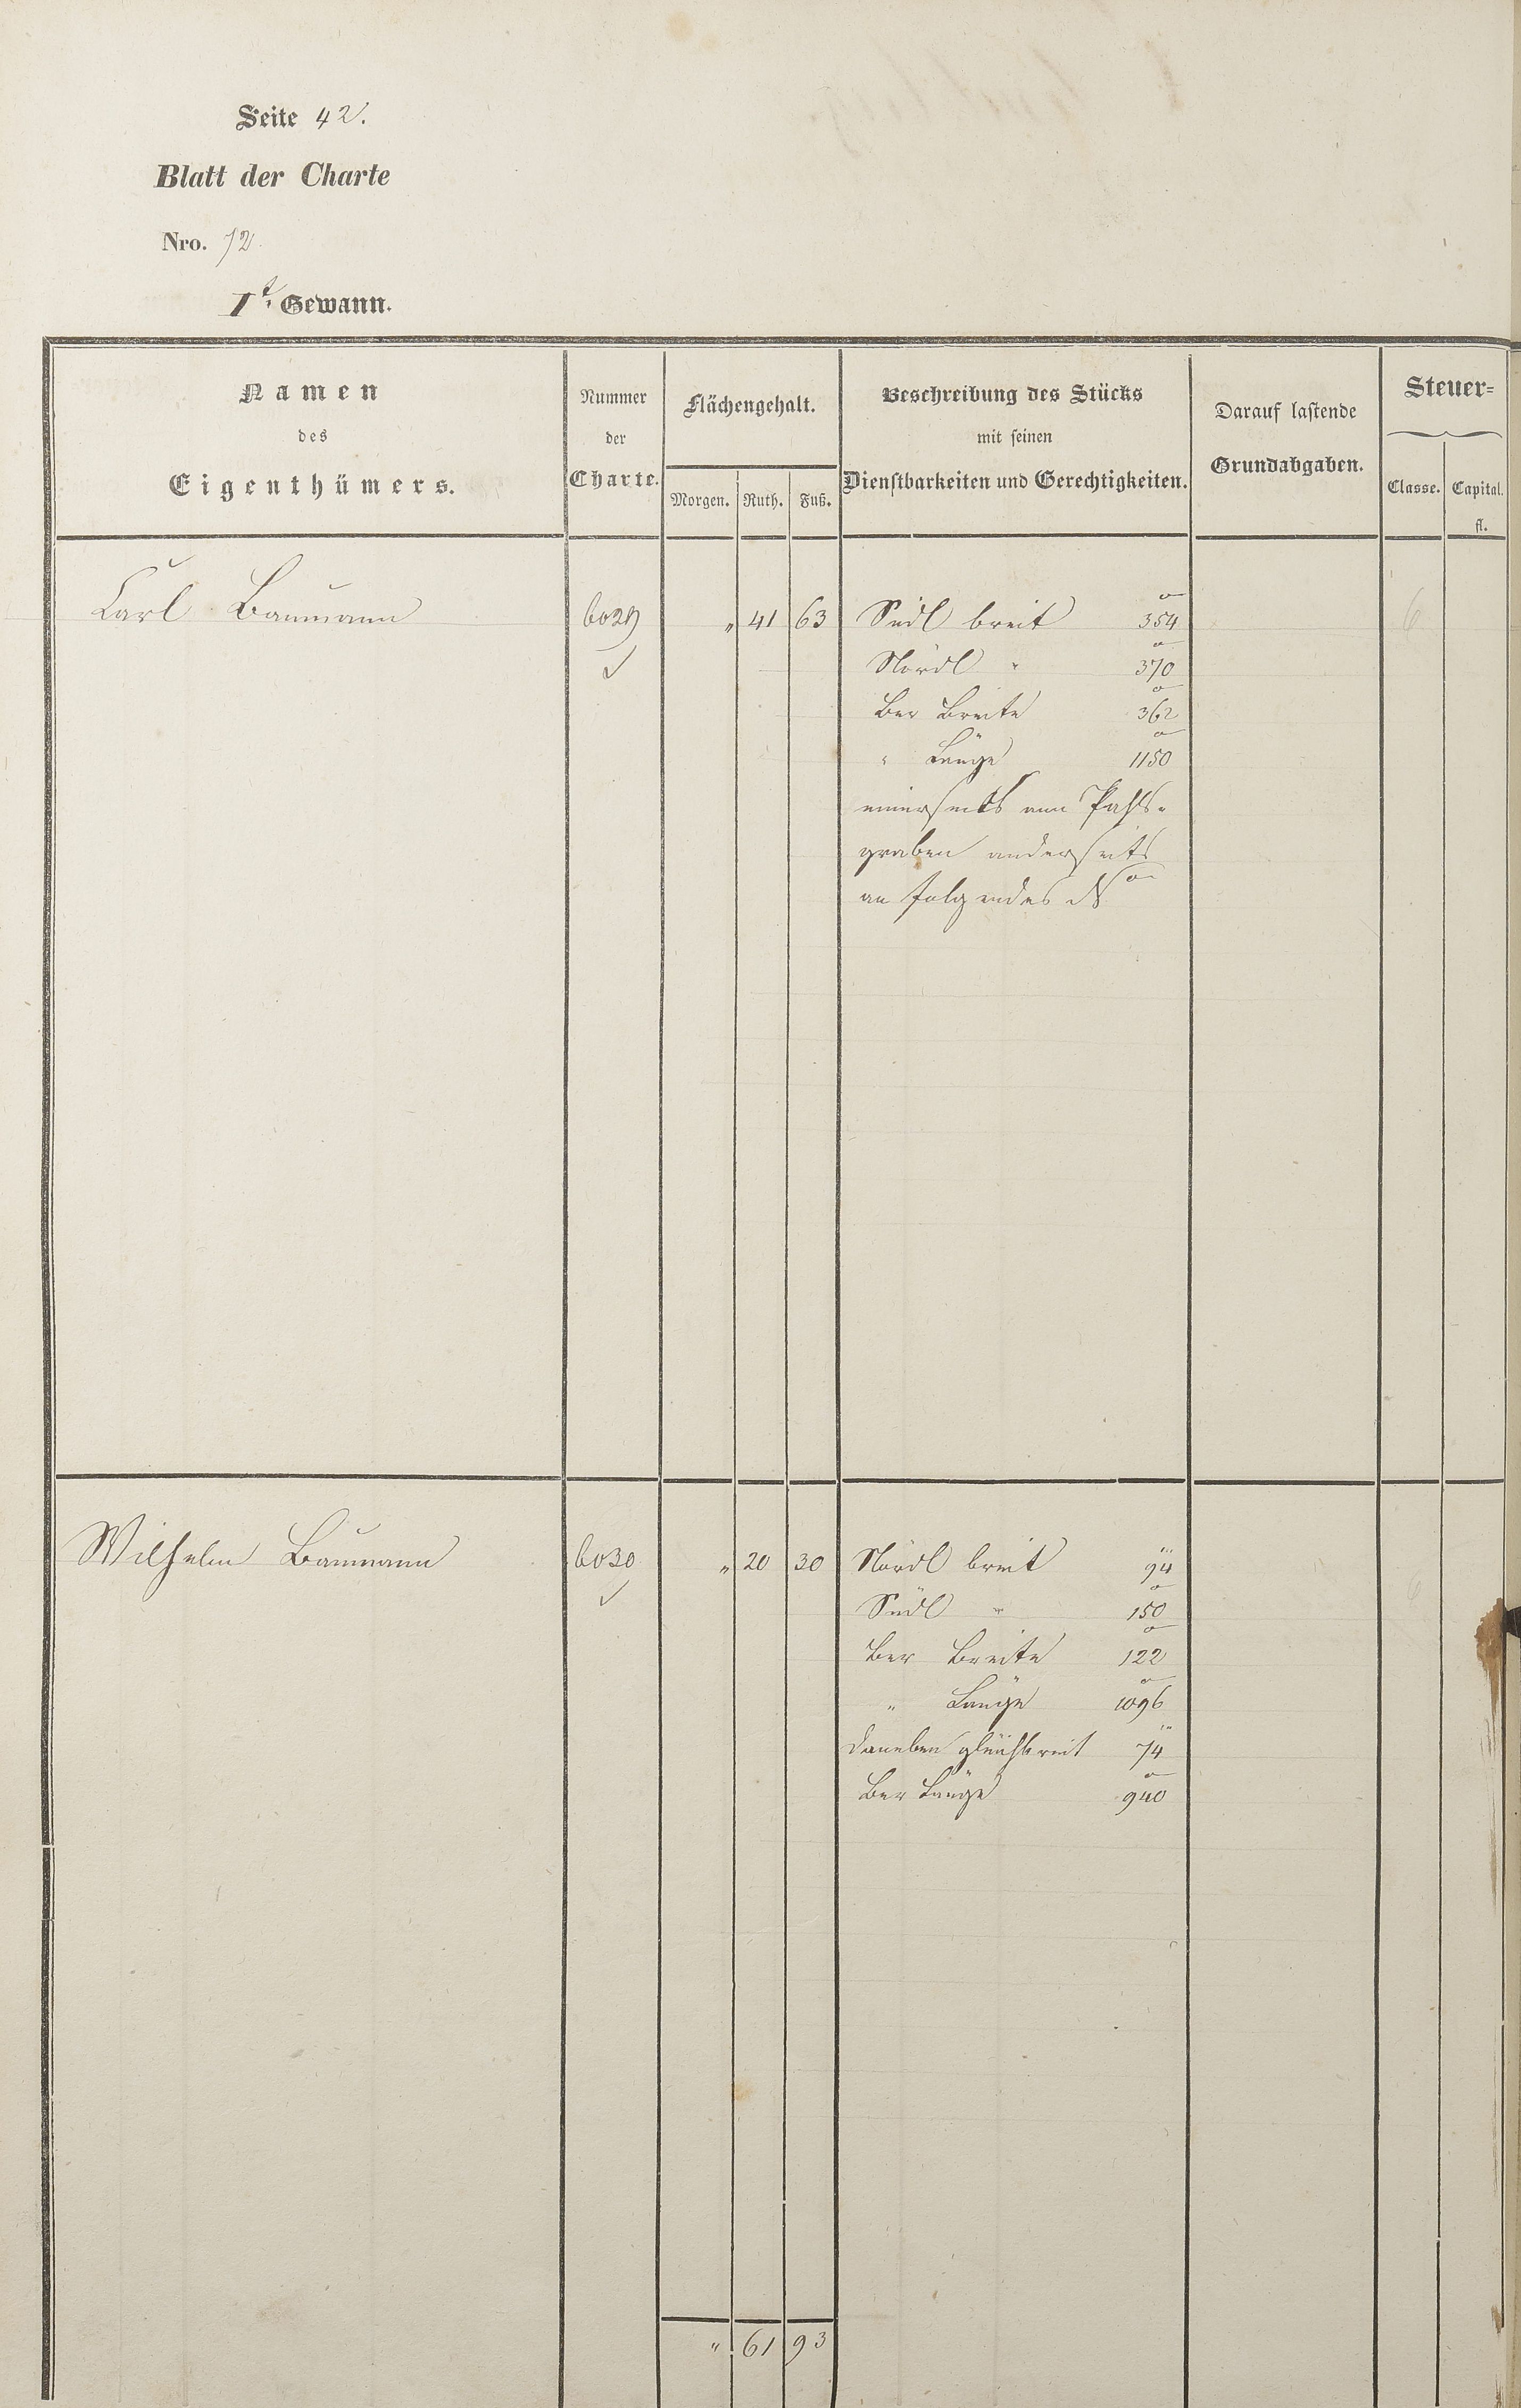 Seite 42.
Blatt der Charte
Nro. 72
1t. Gewann.
Namen
des
Eigenthümers.
Nummer
der
Charte.
Flächengehalt.
Morgen. Ruth. Fuß.
Beschreibung des Stücks
mit seinen
Dienstbarkeiten und Gerechtigkeiten.
Darauf lastende
Grundabgaben.
Steuer=
Classe. Capital.
fl.
Carl Baumann 6029 " 41 63 Südl breit 354 6
Nördl " 370
Ber Breite 362
" Länge 1150
einerseits am Pahls-
graben anderseits
an folgendes
Wilhelm Baumann 6030 " 20 30 Nördl breit 94 6
Südl " 150
Ber Breite 122
" Länge 1096
daneben gleichbreit 74
Ber Länge 940
" 61 93